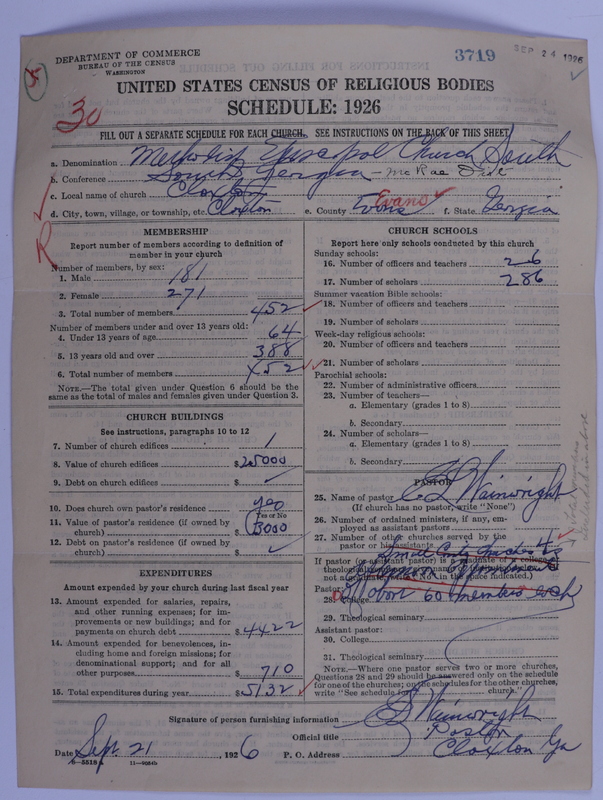 DEPARTMENT OF COMMERCE
BUREAU OF THE CENSUS
WASHINGTON
3719
SEP 24 1926
30
UNITED STATES CENSUS OF RELIGIOUS BODIES
SCHEDULE: 1926
FILL OUT A SEPARATE SCHEDULE FOR EACH CHURCH. SEE INSTRUCTIONS ON THE BACK OF THIS SHEET
a. Denomination Methodist Episcopal Church South
b. Conference South Georgia - McRae Dist
c. Local name of church Claxton
d. City, town, village, or township, etc. Claxton e. County Evans Evans f. State Georgia
R
MEMBERSHIP
Report number of members according to definition of member in your church
Number of members, by sex:
1. Male 181
2. Female 271
3. Total number of members 452
Number of members under and over 13 years old:
4. Under 13 years of age 64
5. 13 years old and over 388
6. Total number of members 452
NOTE.—The total given under Question 6 should be the same as the total of males and females given under Question 3.
CHURCH BUILDINGS
See instructions, paragraphs 10 to 12
7. Number of church edifices 1
8. Value of church edifices $25000
9. Debt on church edifices $
10. Does church own pastor's residence? yes
Yes or No
11. Value of pastor's residence (if owned by church) $3000
12. Debt on pastor's residence (if owned by church) $
EXPENDITURES
Amount expended by your church during last fiscal year
13. Amount expended for salaries, repairs, and other running expenses; for improvements or new buildings; and for payments on church debt $4422
14. Amount expended for benevolences, including home and foreign missions; for denominational support; and for all other purposes $710
15. Total expenditures during year $5132
CHURCH SCHOOLS
Report here only schools conducted by this church
Sunday schools:
16. Number of officers and teachers 26
17. Number of scholars 286
Summer vacation Bible schools:
18. Number of officers and teachers
19. Number of scholars
Week-day religious schools:
20. Number of officers and teachers
21. Number of scholars
Parochial schools:
22. Number of administrative officers
23. Number of teachers—
a. Elementary (grades 1 to 8)
b. Secondary
24. Number of scholars—
a. Elementary (grades 1 to 8)
b. Secondary
PASTOR
25. Name of pastor Wainwright
(If church has no pastor, write "None")
26. Number of ordained ministers, if any, employed as assistant pastors
27. Number of other churches served by the pastor
If pastor (or assistant pastor) is a graduate of a college or
Pastor:
28. College
about 60 members each
29. Theological seminary
Assistant pastor:
30. College
31. Theological seminary
NOTE.—Where one pastor serves two or more churches, Questions 28 and 29 should be answered only on the schedule for one of the churches; on the schedules for the other churches, write "See schedule for church."
Signature of person furnishing information Wainwright
Official title Pastor
Date Sept. 21, 1926 P. O. Address Claxton Ga